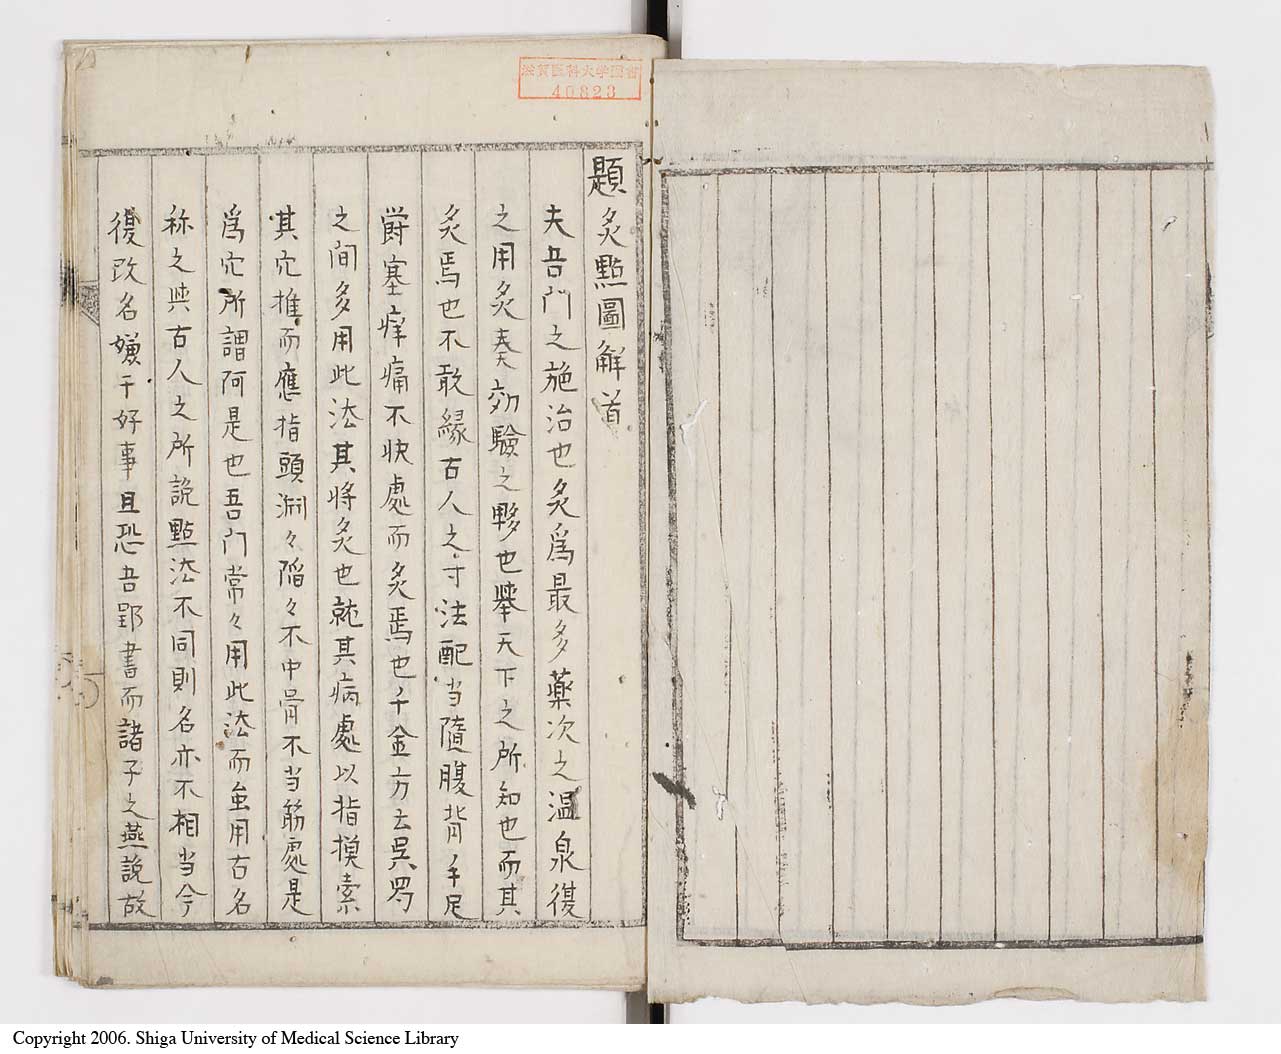 滋賀医科大学図書
40823
題灸點圖解首
夫吾門之施治也灸爲最多藥次之温泉復
之用灸奏効驗之夥也擧天下之所知也而其
灸焉也不敢縁古人之寸法配当隨腹背手足
欝塞痒痛不快處而灸焉也千金方云吳蜀
之間多用此法其將灸也就其病處以指摸索
其穴推而應指頭渊々陷々不中骨不当筋處是
爲穴所謂阿是也吾門常々用此法而虽用古名
称之與古人之所説點法不同則名亦不相当今
復改名嫌于好事且恐吾郢書而諸子之燕説故
Copyright 2006. Shiga University of Medical Science Library